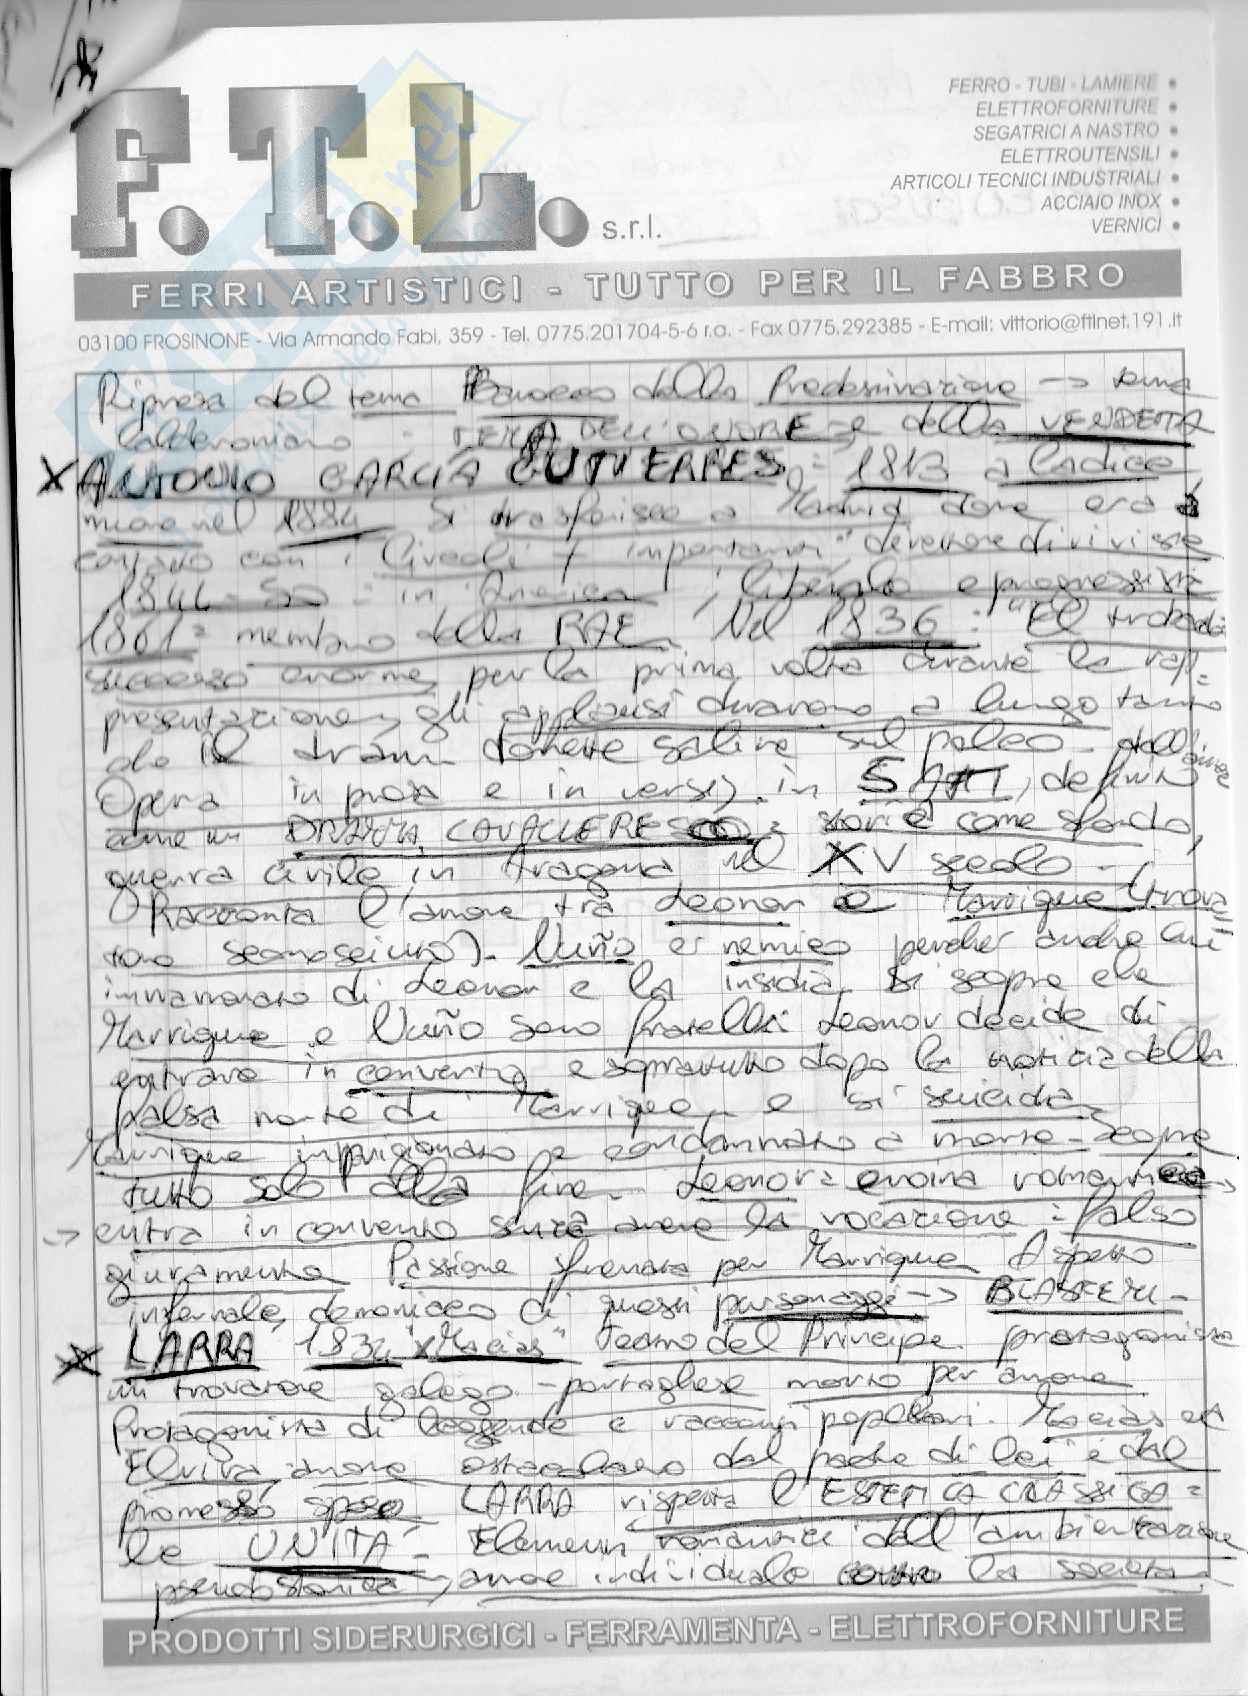 F.T.L. s.r.l.
FERRO - TUBI - LAMIERE •
ELETTROFORNITURE •
SEGATRICI A NASTRO •
ELETTROUTENSILI •
ARTICOLI TECNICI INDUSTRIALI •
ACCIAIO INOX •
VERNICI •
FERRI ARTISTICI - TUTTO PER IL FABBRO
03100 FROSINONE - Via Armando Fabi, 359 - Tel. 0775.201704-5-6 r.a. - Fax 0775.292385 - E-mail: vittorio@ftlnet.191.it
Ripresa del tema Barocco della Predestinazione -> tema
calderoniano = TEMA DELL'ONORE e della VENDETTA
X ANTONIO GARCIA GUTIERRES = 1813 a Cadice
muore nel 1884 Si trasferisce a Madrid dove era a
contatto con i Circoli + importanti direttore di riviste
1844-50 = in America, liberale e progressista
1861 = membro della RAE. Nel 1836 = "El trobador
successo enorme, per la prima volta durante la rap=
presentazione, gli applausi durarono a lungo tanto
che il dramm. dovette salire sul palco.
Opera in prosa e in versi, in 5 ATTI, definito
come un DRAMMA CAVALLERESCO = storie come sfondo,
guerra civile in Aragona nel XV secolo -
Racconta l'amore tra Leonor e Manrique (trova=
tore sconosciuto). Nuño è nemico perché anche lui
innamorato di Leonor e la insidia. Si scopre che
Manrique e Nuño sono fratelli. Leonor decide di
entrare in convento e soprattutto dopo la notizia della
falsa morte di Manrique e si suicida.
Manrique imprigionato e condannato a morte - Scopre
tutto solo alla fine. Leonora eroina romantica ->
-> entra in convento senza avere la vocazione = falso
giuramento Passione sfrenata per Manrique Aspetto
infernale, demoniaco di questi personaggi ->
X LARRA 1834 "Macias" Teatro del Principe protagonista
un trovatore galego-portoghese morto per amore
Protagonista di leggende e racconti popolari. Macias ed
Elvira, amore ostacolato dal padre di lei e dal
promesso sposo LARRA rispetta l'ESTETICA CLASSICA =
le UNITÀ - Elementi romantici dall'ambientazione
pseudostorica, amore individuale contro la società
PRODOTTI SIDERURGICI - FERRAMENTA - ELETTROFORNITURE